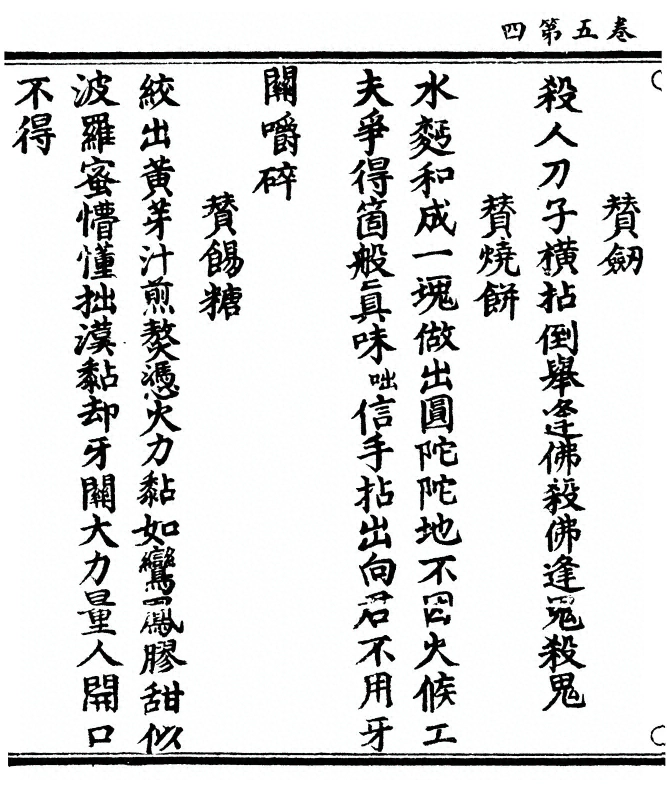 卷五第四
贊劒
殺人刀子橫拈倒舉逢佛殺佛逢鬼殺鬼
贊燒餅
水麫和成一塊做出圓陀陀地不因火候工
夫爭得箇般眞味咄信手拈出向君不用牙
關嚼碎
贊餳糖
絞出黃芽汁煎熬憑火力黏如鸞鳳膠甜似
波羅蜜懵懂拙漢黏却牙關大力量人開口
不得